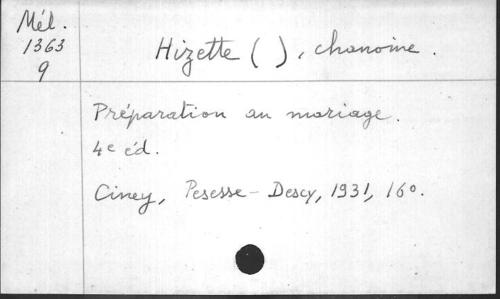 Mél.
1363
9
Hizette ( ), chanoine.
Préparation au mariage.
4e éd.
Ciney, Pesesse-Descy, 1931, 16o.